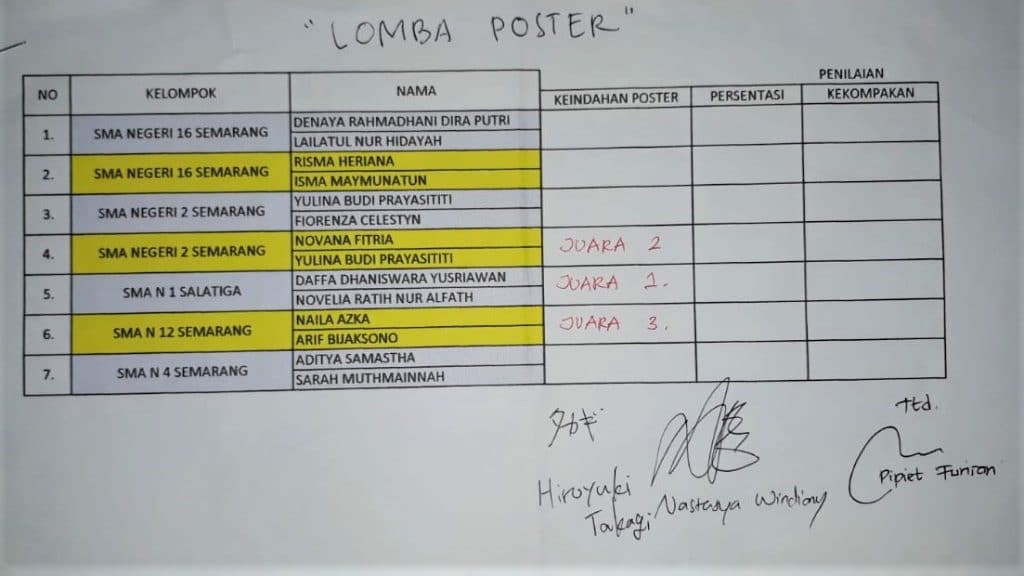 "LOMBA POSTER"
PENILAIAN
NO KELOMPOK NAMA KEINDAHAN POSTER PERSENTASI KEKOMPAKAN
1. SMA NEGERI 16 SEMARANG DENAYA RAHMADHANI DIRA PUTRI
LAILATUL NUR HIDAYAH
2. SMA NEGERI 16 SEMARANG RISMA HERIANA
ISMA MAYMUNATUN
3. SMA NEGERI 2 SEMARANG YULINA BUDI PRAYASITITI
FIORENZA CELESTYN
4. SMA NEGERI 2 SEMARANG NOVANA FITRIA JUARA 2
YULINA BUDI PRAYASITITI
5. SMA N 1 SALATIGA DAFFA DHANISWARA YUSRIAWAN JUARA 1.
NOVELIA RATIH NUR ALFATH
6. SMA N 12 SEMARANG NAILA AZKA JUARA 3.
ARIF BIJAKSONO
7. SMA N 4 SEMARANG ADITYA SAMASTHA
SARAH MUTHMAINNAH
Ttd.
Hiroyuki
Takagi
Nastasya
Pipiet